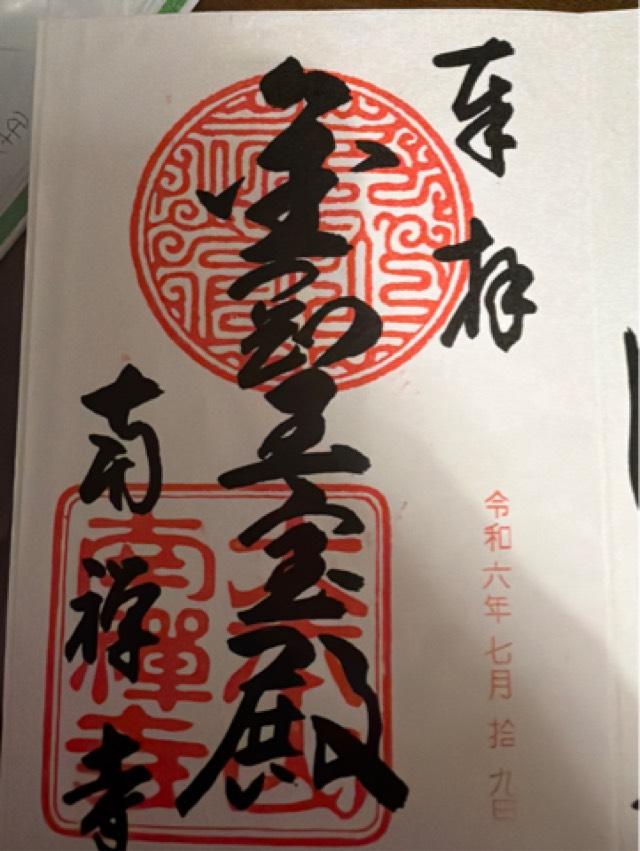 奉拝
令和六年 七月 拾 九日
金剛王宝殿
南禅寺
大本山
南禪寺